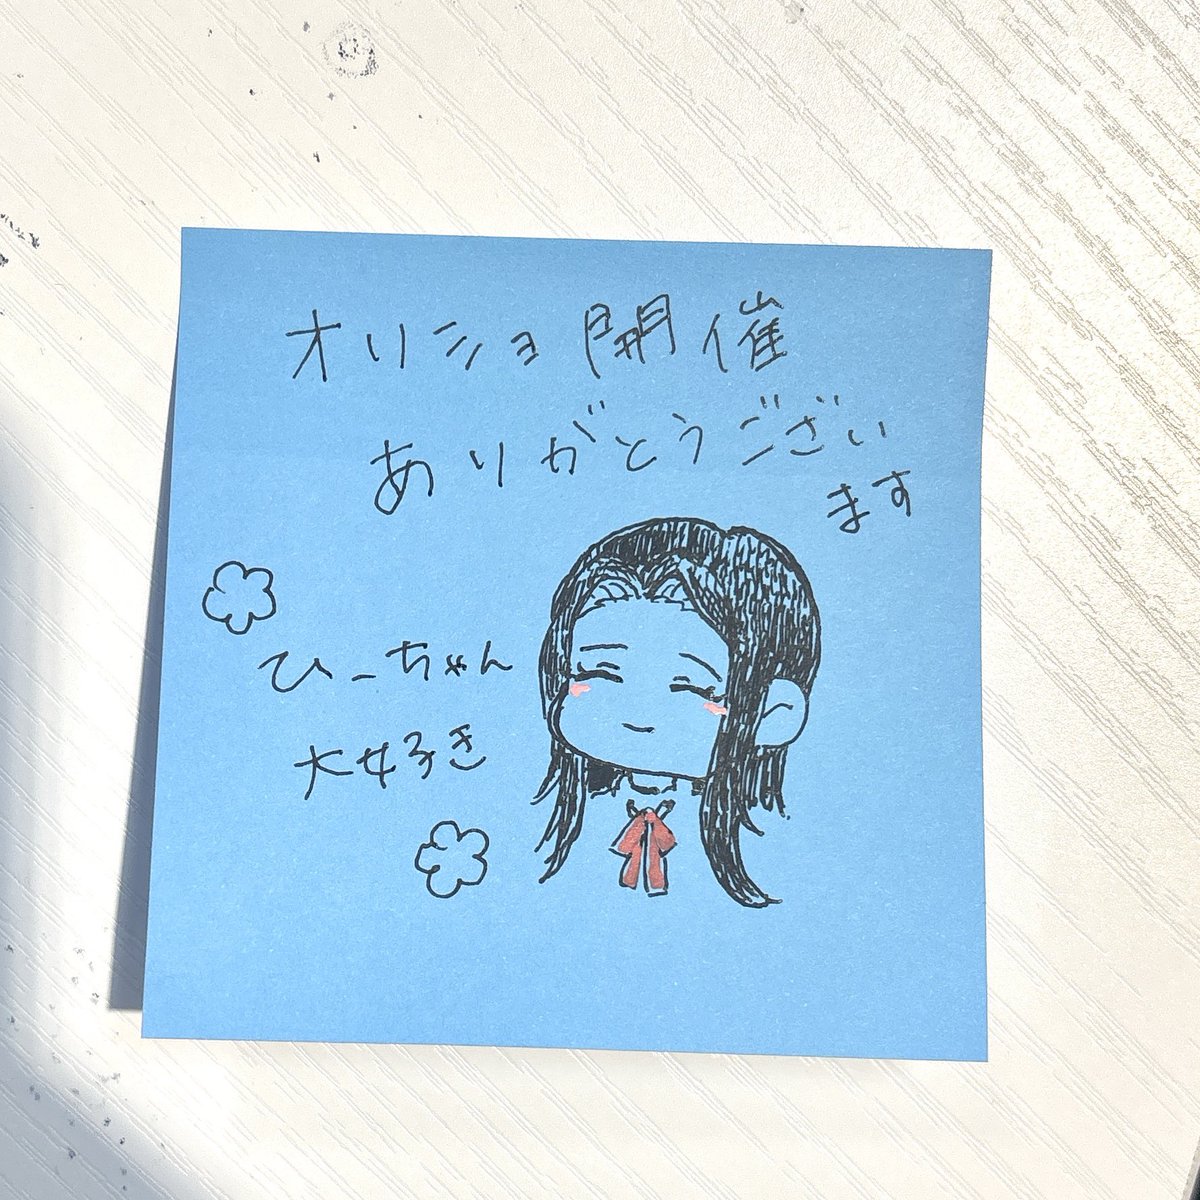 オリショ開催
ありがとうござい
ます
ひーちゃん
大好き